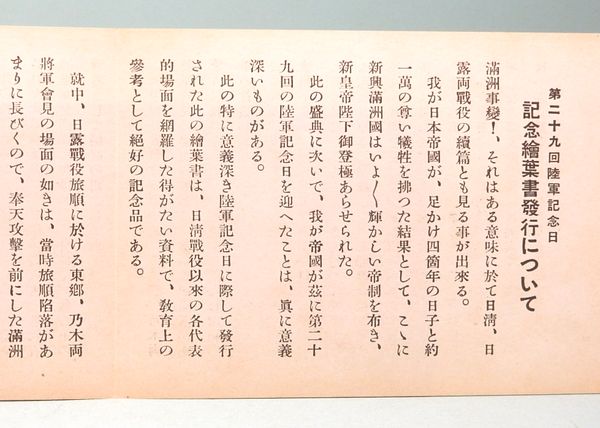 第二十九回陸軍記念日
記念繪葉書發行について
滿洲事變！、それはある意味に於て日淸、日
露兩戰役の續篇とも見る事が出來る。
我が日本帝國が、足かけ四箇年の日子と約
一萬の尊い犧牲を拂つた結果として、こゝに
新興滿洲國はいよ〱輝かしい帝制を布き、
新皇帝陛下御登極あらせられた。
此の盛典に次いで、我が帝國が茲に第二十
九回の陸軍記念日を迎へたことは、眞に意義
深いものがある。
此の特に意義深き陸軍記念日に際して發行
された此の繪葉書は、日淸戰役以來の各代表
的場面を網羅した得がたい資料で、敎育上の
參考として絕好の記念品である。
就中、日露戰役旅順に於ける東鄕、乃木兩
將軍會見の場面の如きは、當時旅順陷落があ
まりに長びくので、奉天攻擊を前にした滿洲